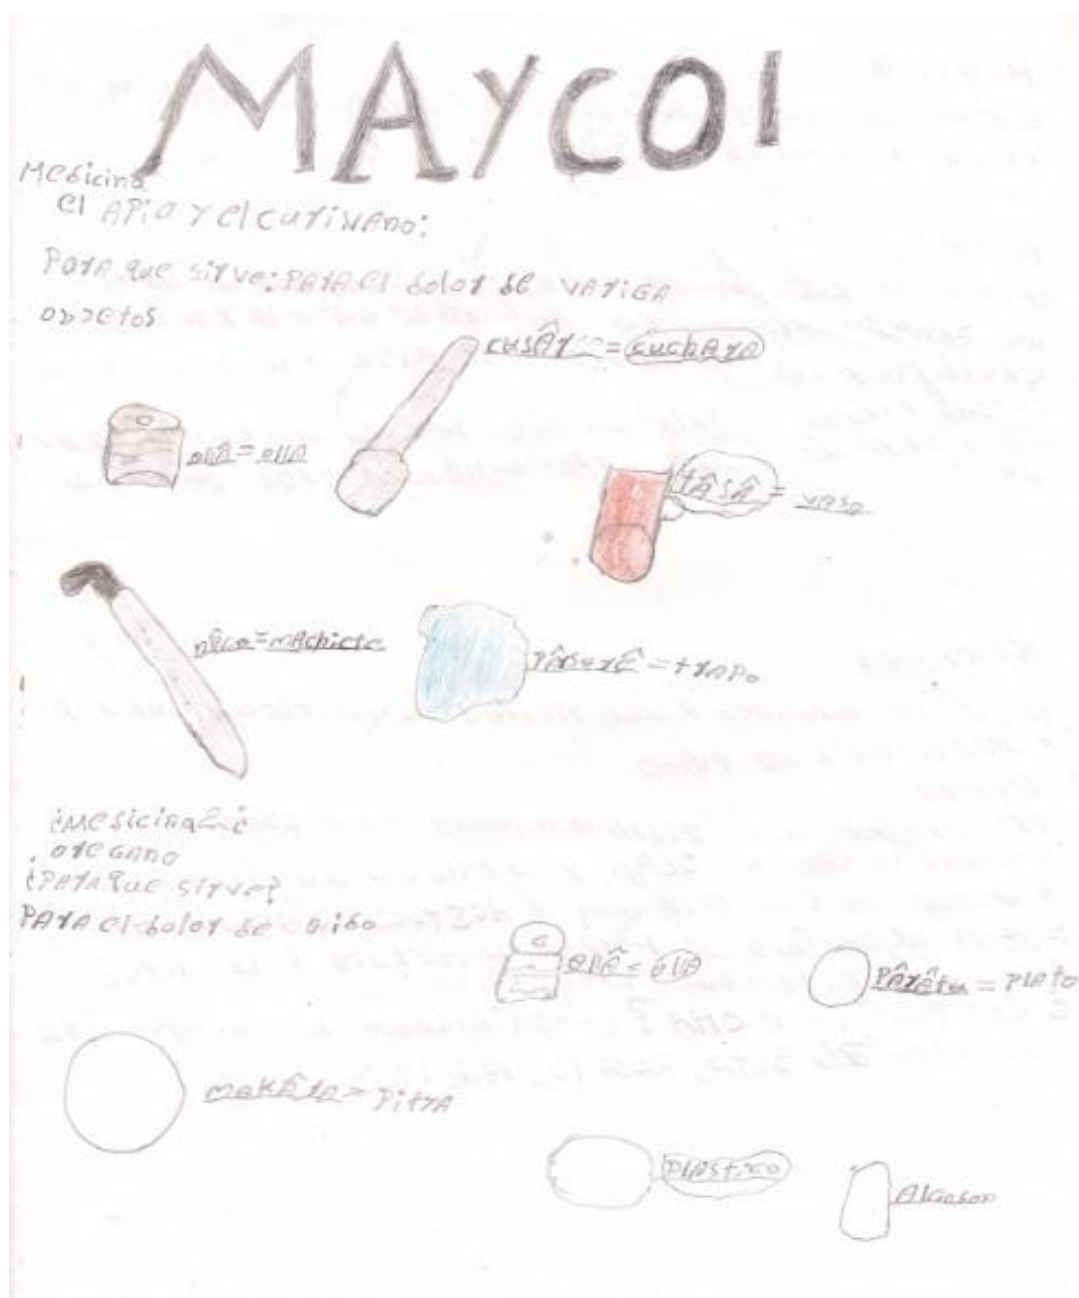 MAycol
Medicina
el APio y el curiNAno:
PArA que sirve: PArA el dolor de vArigA
obJetos
cusÂrA = cuchArA
ollÂ = ollA
tÂsÂ = vaso
nêca = mAchiete
= trApo
¿Medicinal?
oregAno
¿PArA que sirve?
PArA el dolor de oido
ollÂ = ollA
PÂrÂta = PlAto
makÂrA = PitrA
PlAstico
Algodon